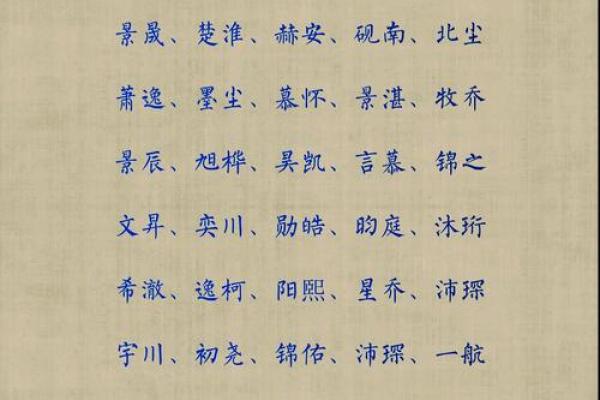 景晟、楚淮、赫安、砚南、北尘
萧逸、墨尘、慕怀、景湛、牧乔
景辰、旭桦、昊凯、言慕、锦之
文昇、奕川、勋皓、昀庭、沐珩
希澈、逸柯、阳熙、星乔、沛琛
宇川、初尧、锦佑、沛琛、一航